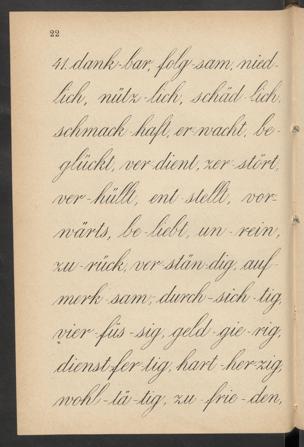 22
41. dank-bar, folg-sam, nied-
lich, nütz-lich, schäd-lich,
schmack-haft, er-wacht, be-
glückt, ver-dient, zer-stört,
ver-hüllt, ent-stellt, vor-
wärts, be-liebt, un-rein,
zu-rück, ver-stän-dig, auf-
merk-sam, durch-sich-tig,
vier-füs-sig, geld-gie-rig,
dienst-fer-tig, hart-her-zig,
wohl-tä-tig, zu-frie-den,